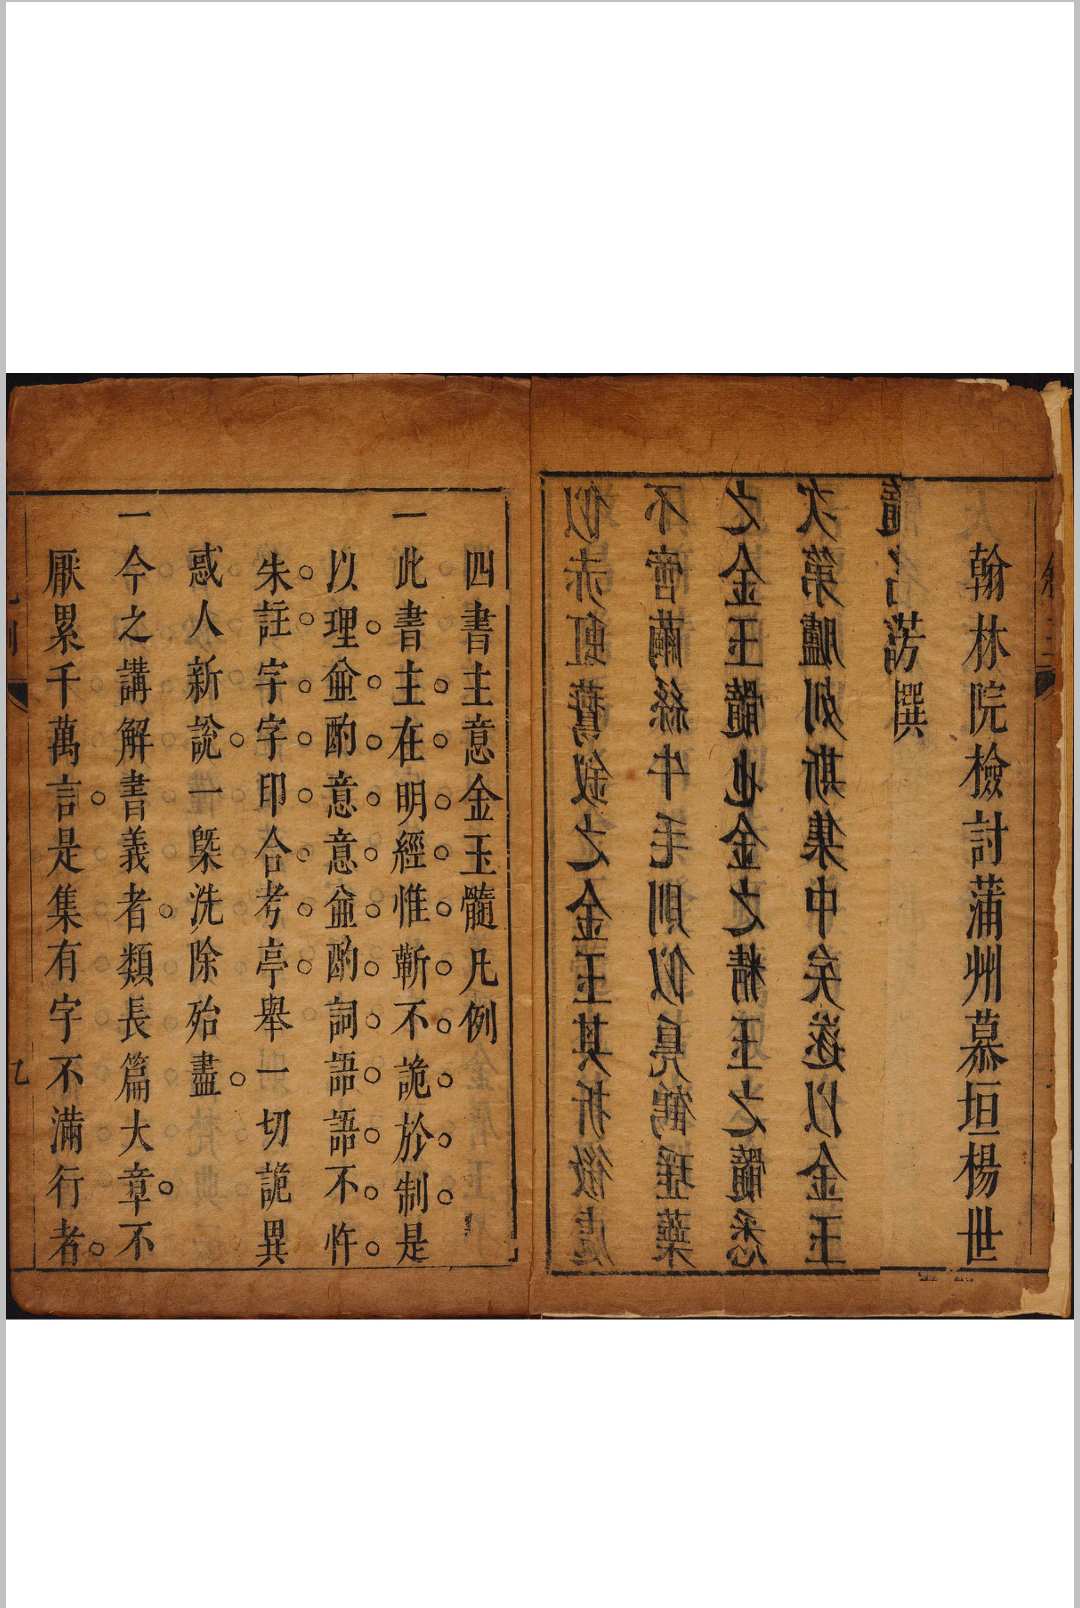 翰林院檢討蒲州慕垣楊世
芳撰
似赤虹鶱釵之金玉其析微處
不啻繭絲牛毛則似鳧鶴瑶蕖
之金玉髓也金之精玉之髓悉
次第臚列斯集中矣遂以金玉
髓名諸
四書主意金玉髓凡例
一此書主在明經惟蘄不詭於制是
以理㑒酌意意㑒酌詞語語不忤
朱註字字印合考亭舉一切詭異
惑人新說一槩洗除殆盡
一今之講解書義者類長篇大章不
厭累千萬言是集有字不滿行者